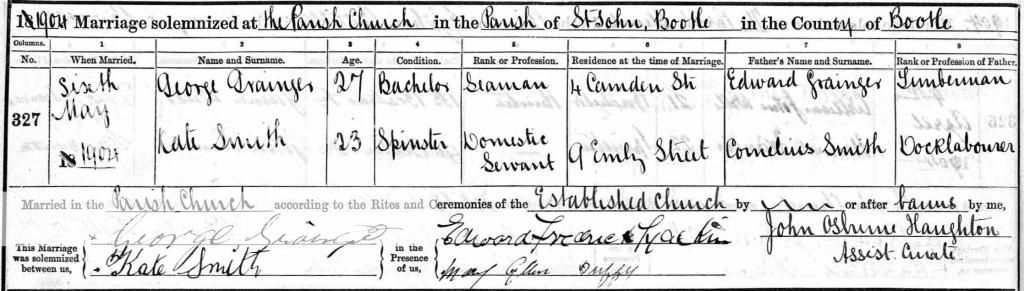 1904 Marriage solemnized at the Parish Church in the Parish of St John, Bootle in the County of Bootle
Columns. 1 2 3 4 5 6 7 8
No. When Married. Name and Surname. Age. Condition. Rank or Profession. Residence at the time of Marriage. Father's Name and Surname. Rank or Profession of Father.
327 Sixth May 1904 George Grainger 27 Bachelor Seaman 4 Camden St Edward Grainger Lumberman
Kate Smith 23 Spinster Domestic Servant 9 Emily Street Cornelius Smith Docklabourer
Married in the Parish Church according to the Rites and Ceremonies of the Established Church by or after banns by me,
This Marriage was solemnized between us, George Grainger Kate Smith in the Presence of us, Edward Frederick Mary Ellen Duffy John Osburne Haughton Assist. Curate.